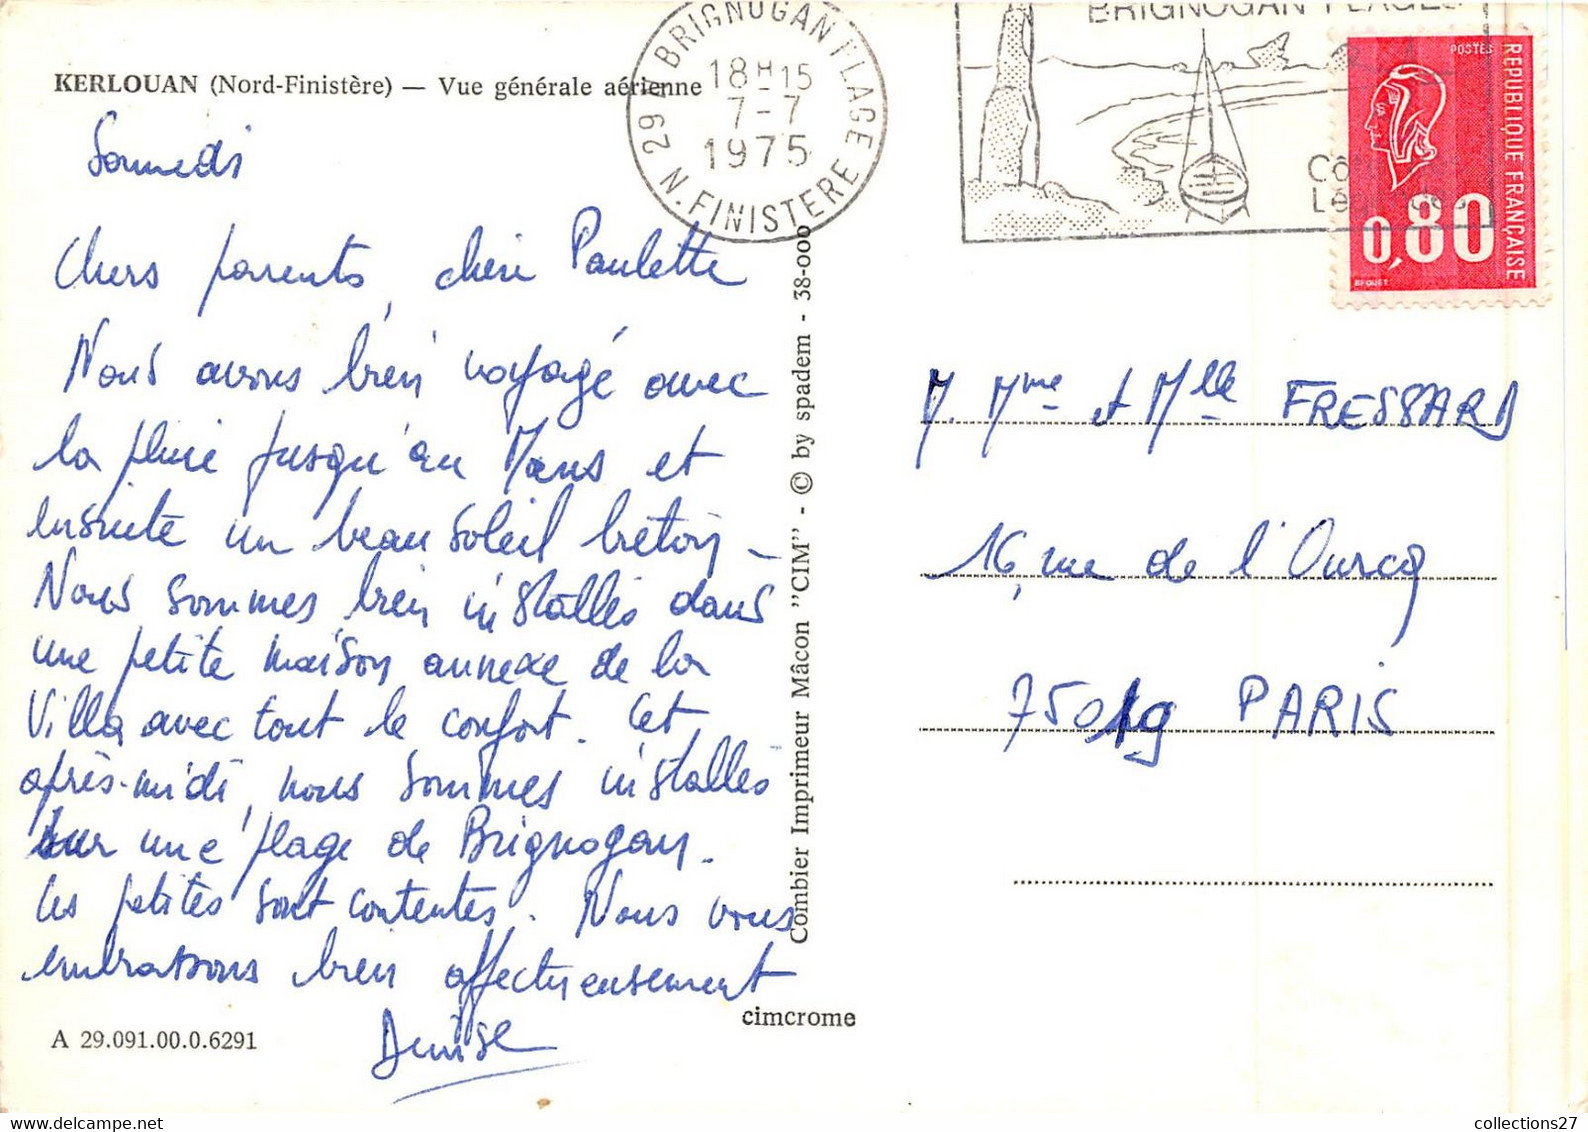 KERLOUAN (Nord-Finistère) — Vue générale aérienne
Samedi
Chers parents, chère Paulette
Nous avons bien voyagé avec
la pluie jusqu'au Mans et
ensuite un beau soleil breton –
Nous sommes bien installés dans
une petite maison annexe de la
Villa avec tout le confort. Cet
après-midi, nous sommes installés
sur une plage de Brignogan.
Les petites sont contentes. Nous vous
embrassons bien affectueusement
Denise
A 29.091.00.0.6291
cimcrome
Combier Imprimeur Mâcon "CIM" - © by spadem - 38-000
29 A BRIGNOGAN PLAGE
18H15
7-7
1975
N. FINISTERE
BRIGNOGAN PLAGES
POSTES
REPUBLIQUE FRANÇAISE
0,80
BEQUET
M. Mme et Mlle FRESSARD
16, rue de l'Ourcq
75019 PARIS
collections27